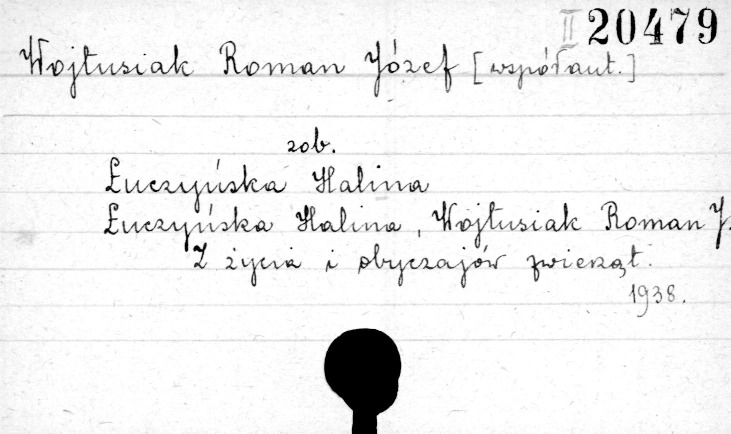 II 20479
Wojtusiak Roman Józef [współaut.]
zob.
Łuczyńska Halina
Łuczyńska Halina, Wojtusiak Roman J.
Z życia i obyczajów zwierząt.
1938.